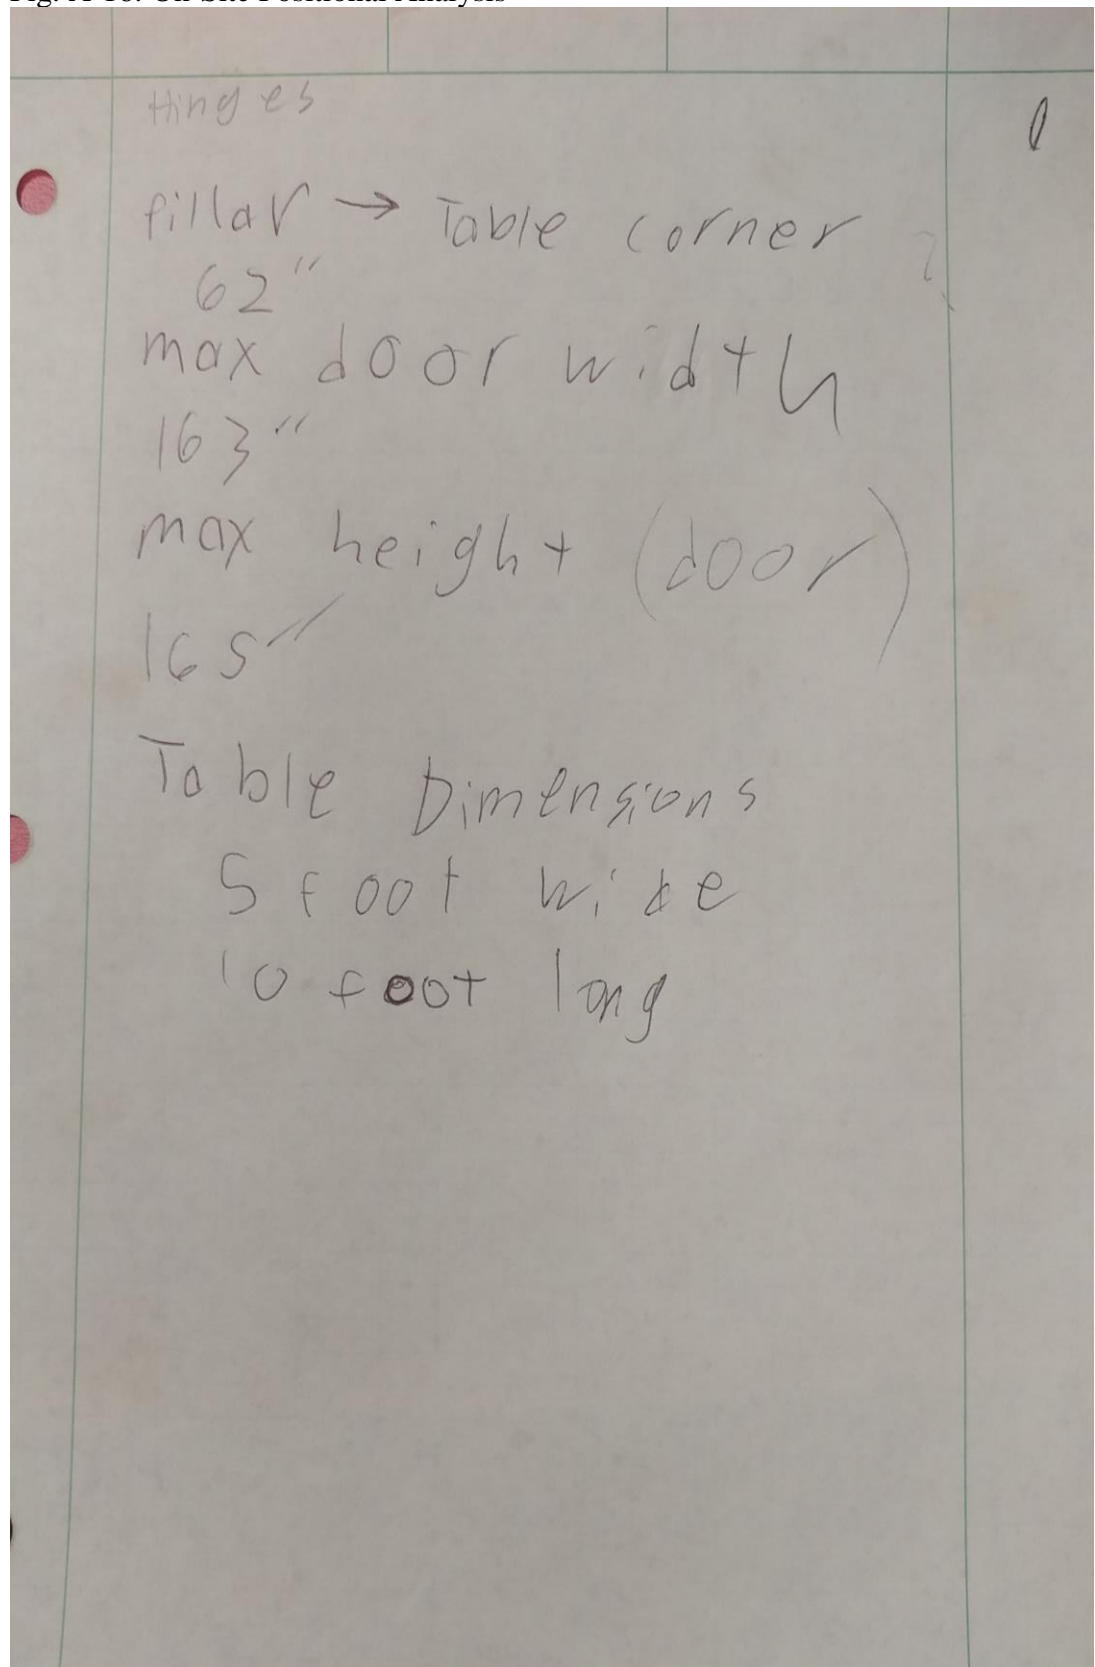 Hinges
pillar → Table corner ?
62"
max door width
163"
max height (door)
165"
Table Dimensions
5 foot wide
10 foot long